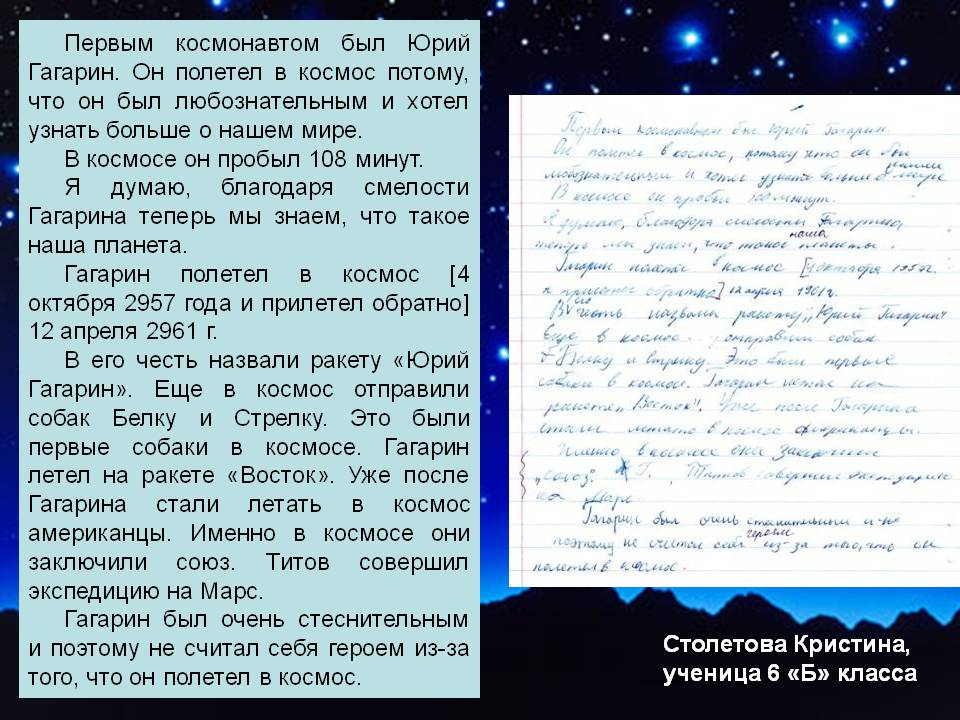 Первым космонавтом был Юрий
Гагарин. Он полетел в космос потому,
что он был любознательным и хотел
узнать больше о нашем мире.
В космосе он пробыл 108 минут.
Я думаю, благодаря смелости
Гагарина теперь мы знаем, что такое
наша планета.
Гагарин полетел в космос [4
октября 2957 года и прилетел обратно]
12 апреля 2961 г.
В его честь назвали ракету «Юрий
Гагарин». Еще в космос отправили
собак Белку и Стрелку. Это были
первые собаки в космосе. Гагарин
летел на ракете «Восток». Уже после
Гагарина стали летать в космос
американцы. Именно в космосе они
заключили союз. Титов совершил
экспедицию на Марс.
Гагарин был очень стеснительным
и поэтому не считал себя героем из-за
того, что он полетел в космос.
Первым космонавтом был Юрий Гагарин.
Он полетел в космос, потому что он был
нашем
любознательным и хотел узнать больше о мире
В космосе он пробыл минут.
Я думаю, благодаря смелости Гагарина,
наша
теперь мы знаем, что такое планета.
Гагарин полетел в космос [4 октября 1957г.
и прилетел обратно] 12 апреля 1961г.
его
В честь назвали ракету „Юрий Гагарин"
Еще в космос отправили собак
Белку и Стрелку. Это были первые
собаки в космосе. Гагарин летел на
ракете „Восток". Уже после Гагарина
стали летать в космос американцы.
Именно в космосе они заключили
„союз". Г. Титов совершил экспедицию
на Марс.
Гагарин был очень стеснительным и
героем
поэтому не считал себя из-за того, что он
полетел в космос.
Столетова Кристина,
ученица 6 «Б» класса